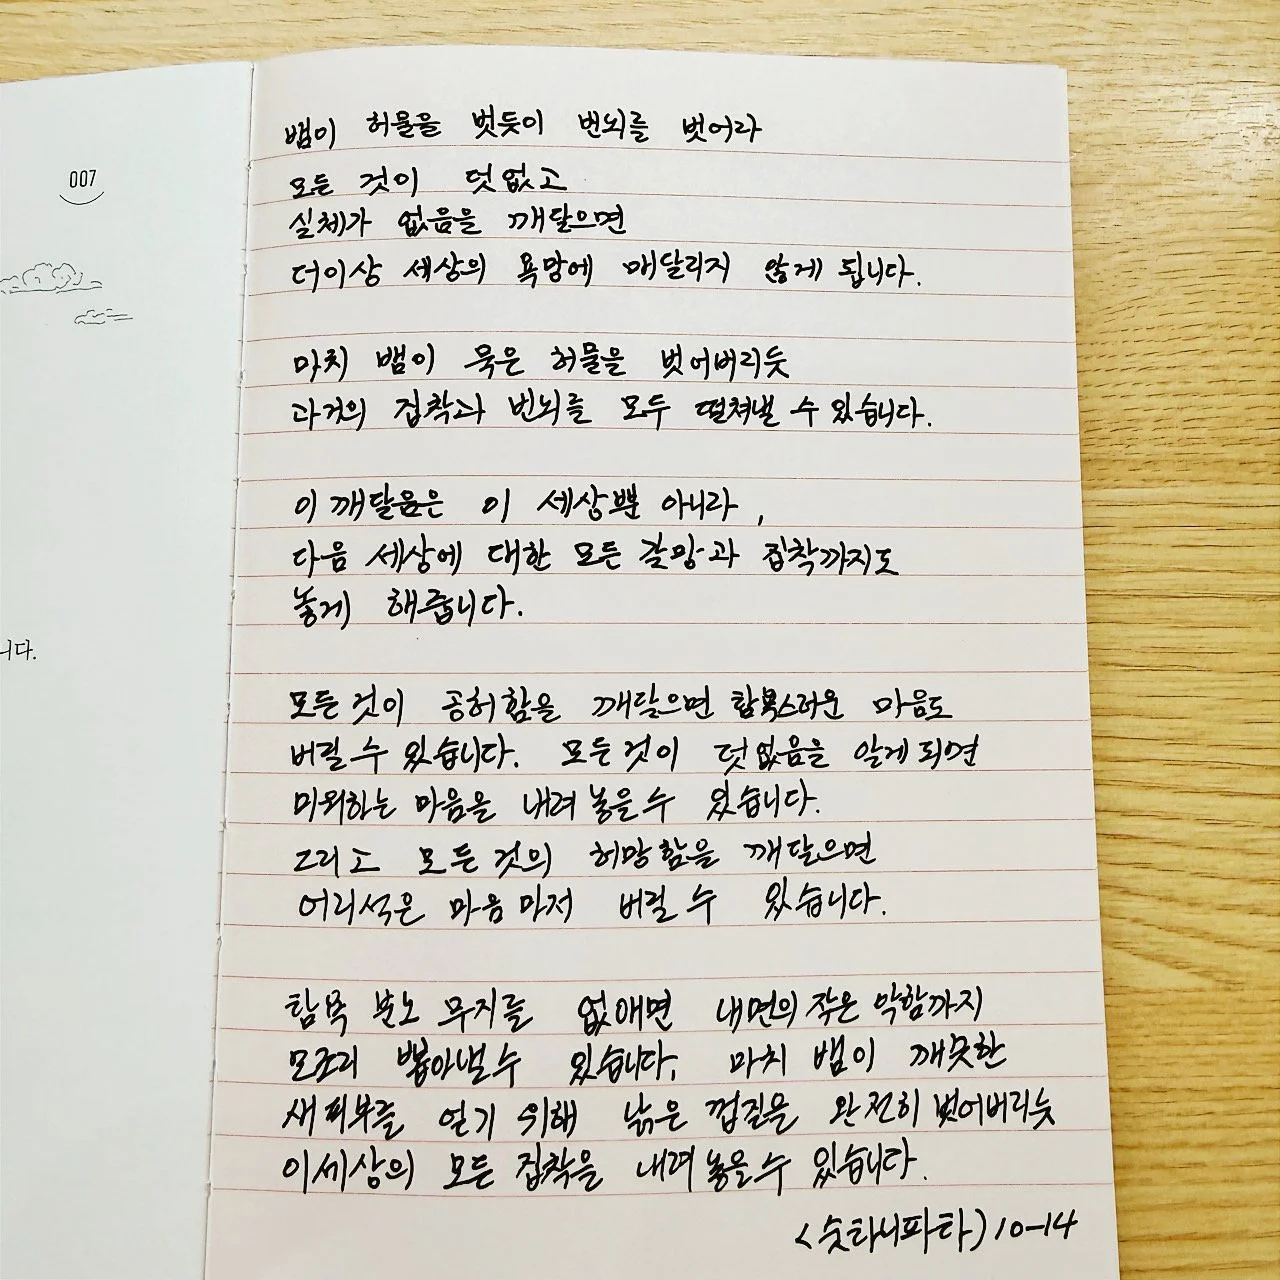 007
니다.
뱀이 허물을 벗듯이 번뇌를 벗어라
모든 것이 덧없고
실체가 없음을 깨달으면
더이상 세상의 욕망에 매달리지 않게 됩니다.
마치 뱀이 묵은 허물을 벗어버리듯
과거의 집착과 번뇌를 모두 떨쳐낼 수 있습니다.
이 깨달음은 이 세상뿐 아니라,
다음 세상에 대한 모든 갈망과 집착까지도
놓게 해줍니다.
모든 것이 공허함을 깨달으면 탐욕스러운 마음도
버릴 수 있습니다. 모든 것이 덧없음을 알게 되면
미워하는 마음을 내려 놓을 수 있습니다.
그리고 모든 것의 허망함을 깨달으면
어리석은 마음마저 버릴 수 있습니다.
탐욕 분노 무지를 없애면 내면의 작은 악함까지
모조리 뽑아낼 수 있습니다. 마치 뱀이 깨끗한
새 피부를 얻기 위해 낡은 껍질을 완전히 벗어버리듯
이 세상의 모든 집착을 내려 놓을 수 있습니다.
<숫타니파타> 10-14